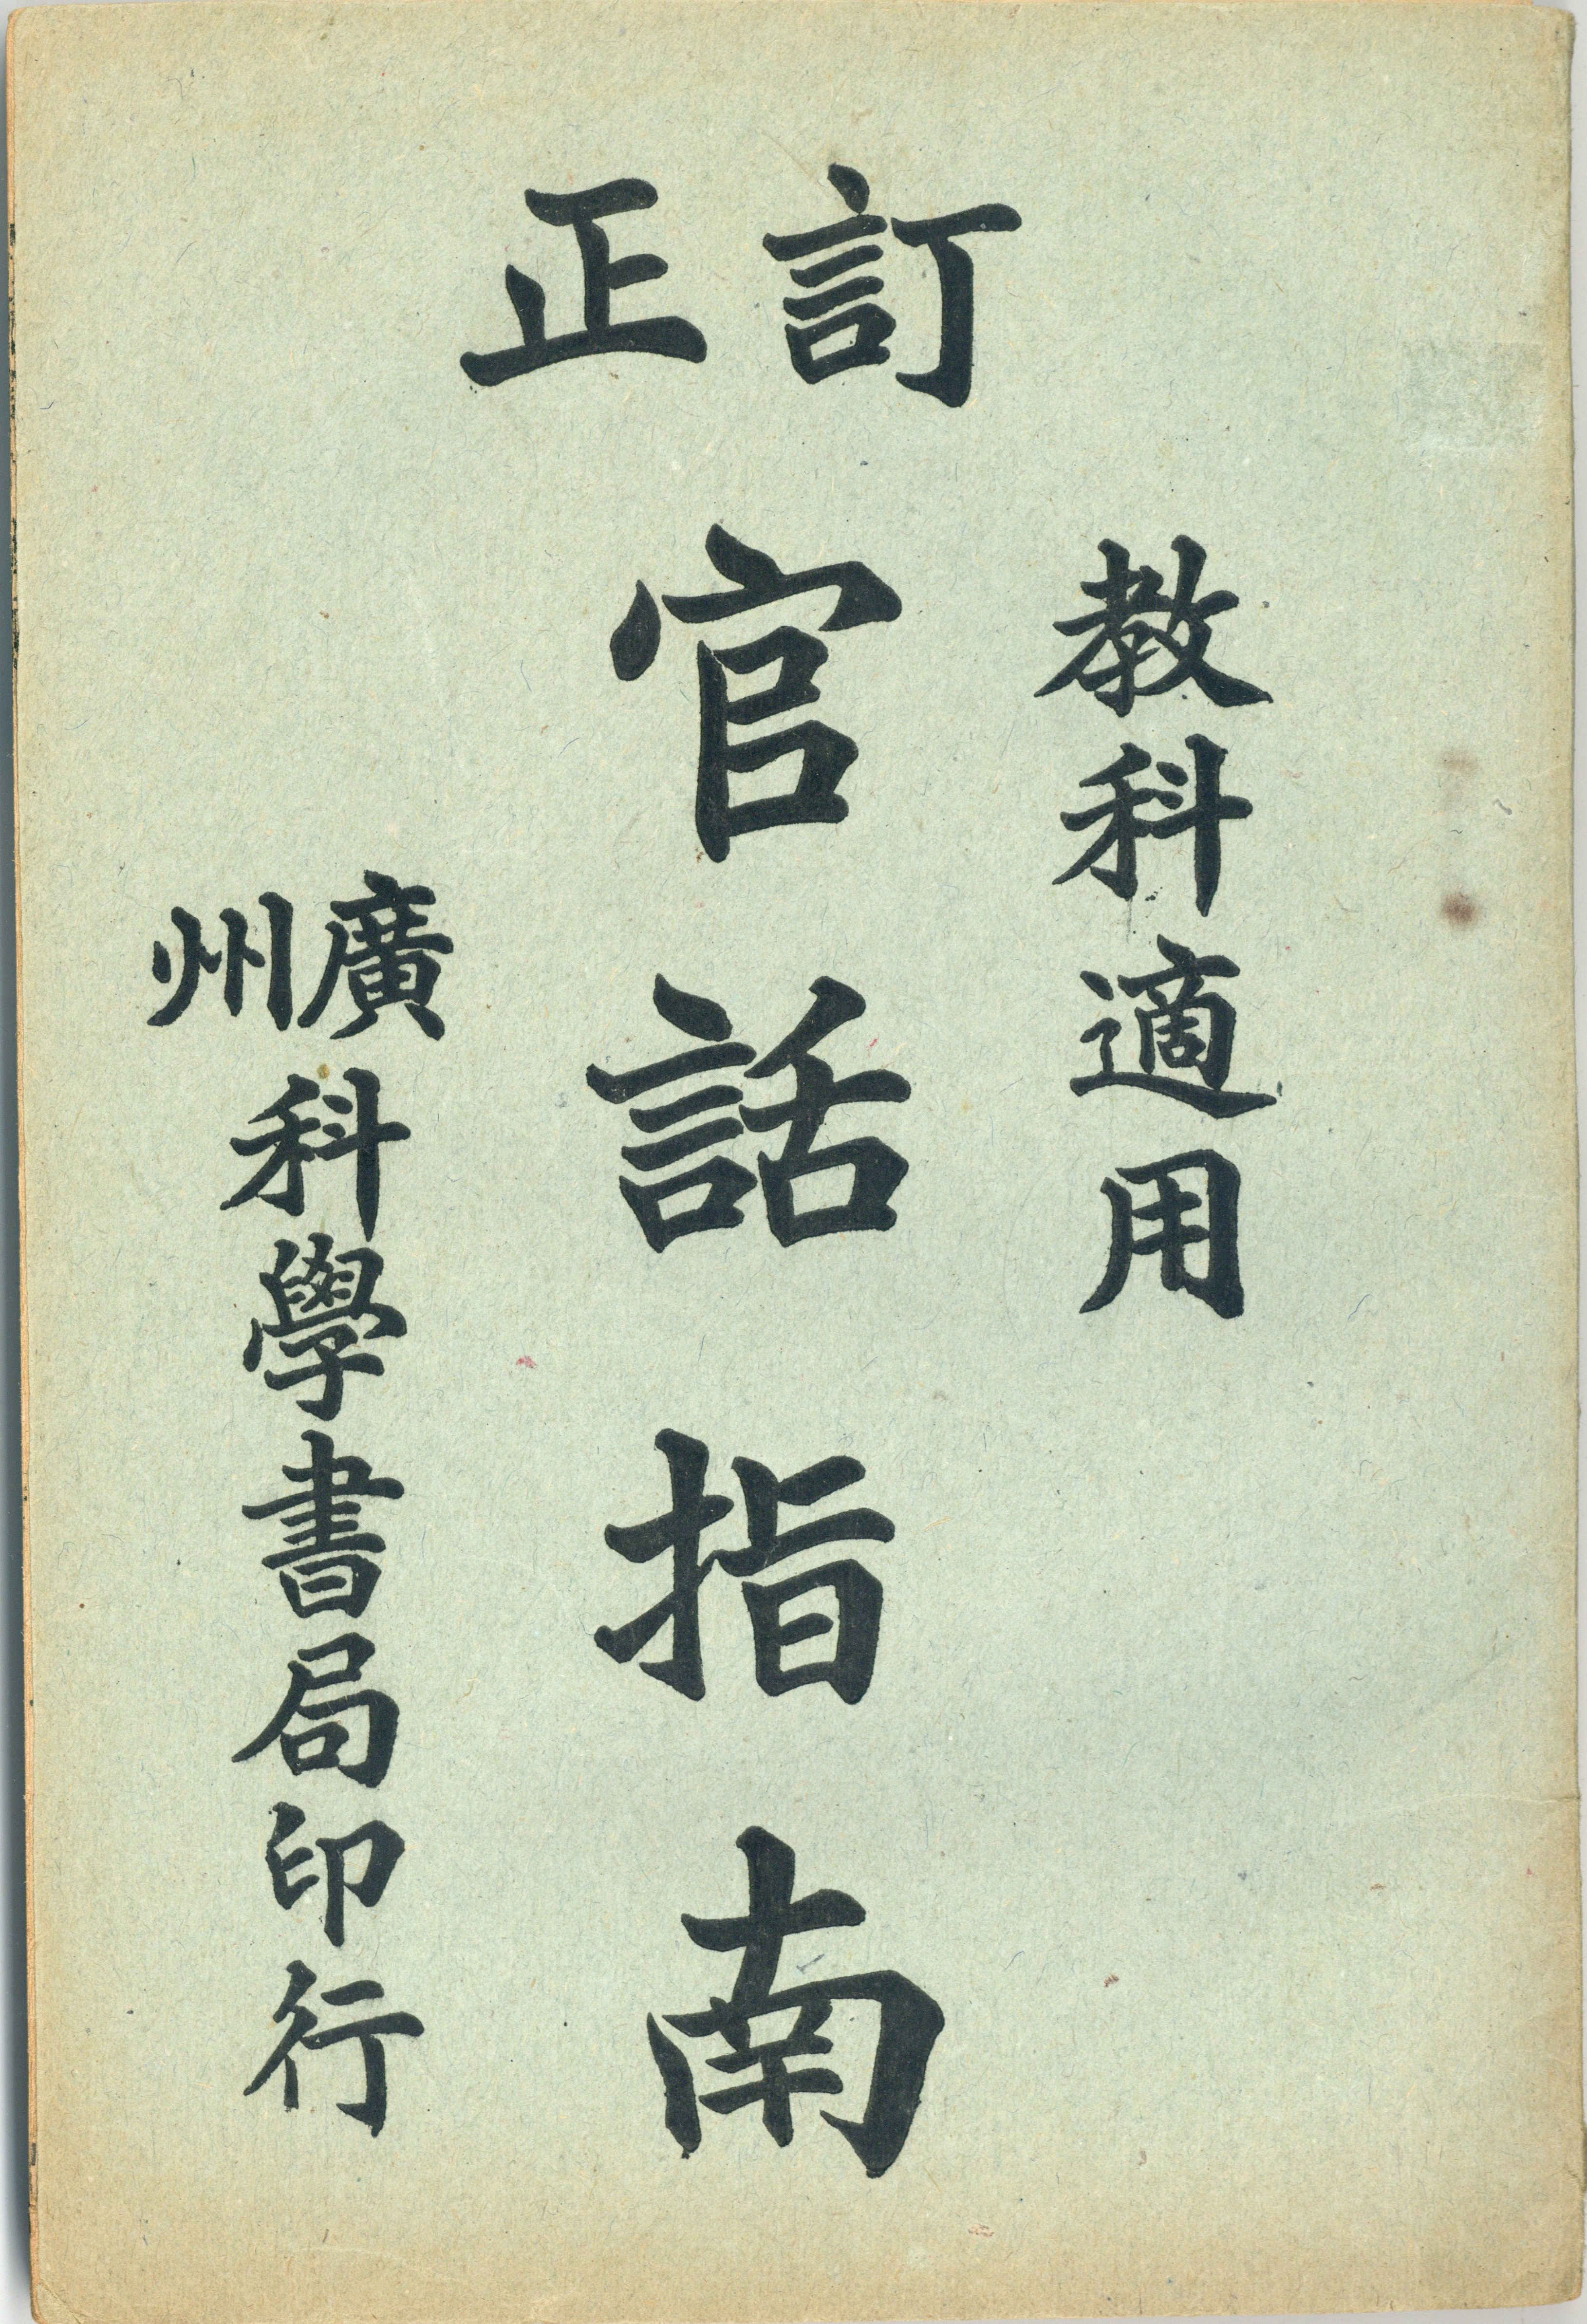 訂正
教科適用
官話指南
廣州
科學書局印行